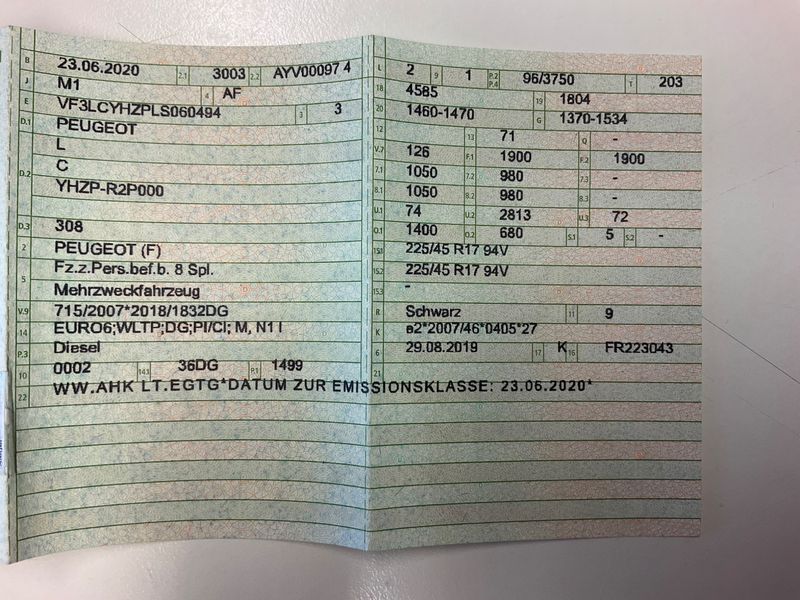 B 23.06.2020 2.1 3003 2.2 AYV00097 4
J M1 4 AF
E VF3LCYHZPLS060494 3 3
D.1 PEUGEOT
L
D.2 C
YHZP-R2P000
D.3 308
2 PEUGEOT (F)
5 Fz.z.Pers.bef.b. 8 Spl.
Mehrzweckfahrzeug
V.9 715/2007*2018/1832DG
14 EURO6;WLTP;DG;PI/CI; M, N1 I
P.3 Diesel
10 0002 14.1 36DG P.1 1499
22 WW.AHK LT.EGTG*DATUM ZUR EMISSIONSKLASSE: 23.06.2020*
L 2 9 1 P.2 P.4 96/3750 T 203
18 4585 19 1804
20 1460-1470 G 1370-1534
12 13 71 Q -
V.7 126 F.1 1900 F.2 1900
7.1 1050 7.2 980 7.3 -
8.1 1050 8.2 980 8.3 -
U.1 74 U.2 2813 U.3 72
O.1 1400 O.2 680 S.1 5 S.2 -
15.1 225/45 R17 94V
15.2 225/45 R17 94V
15.3 -
R Schwarz 11 9
K e2*2007/46*0405*27
6 29.08.2019 17 K 16 FR223043
21